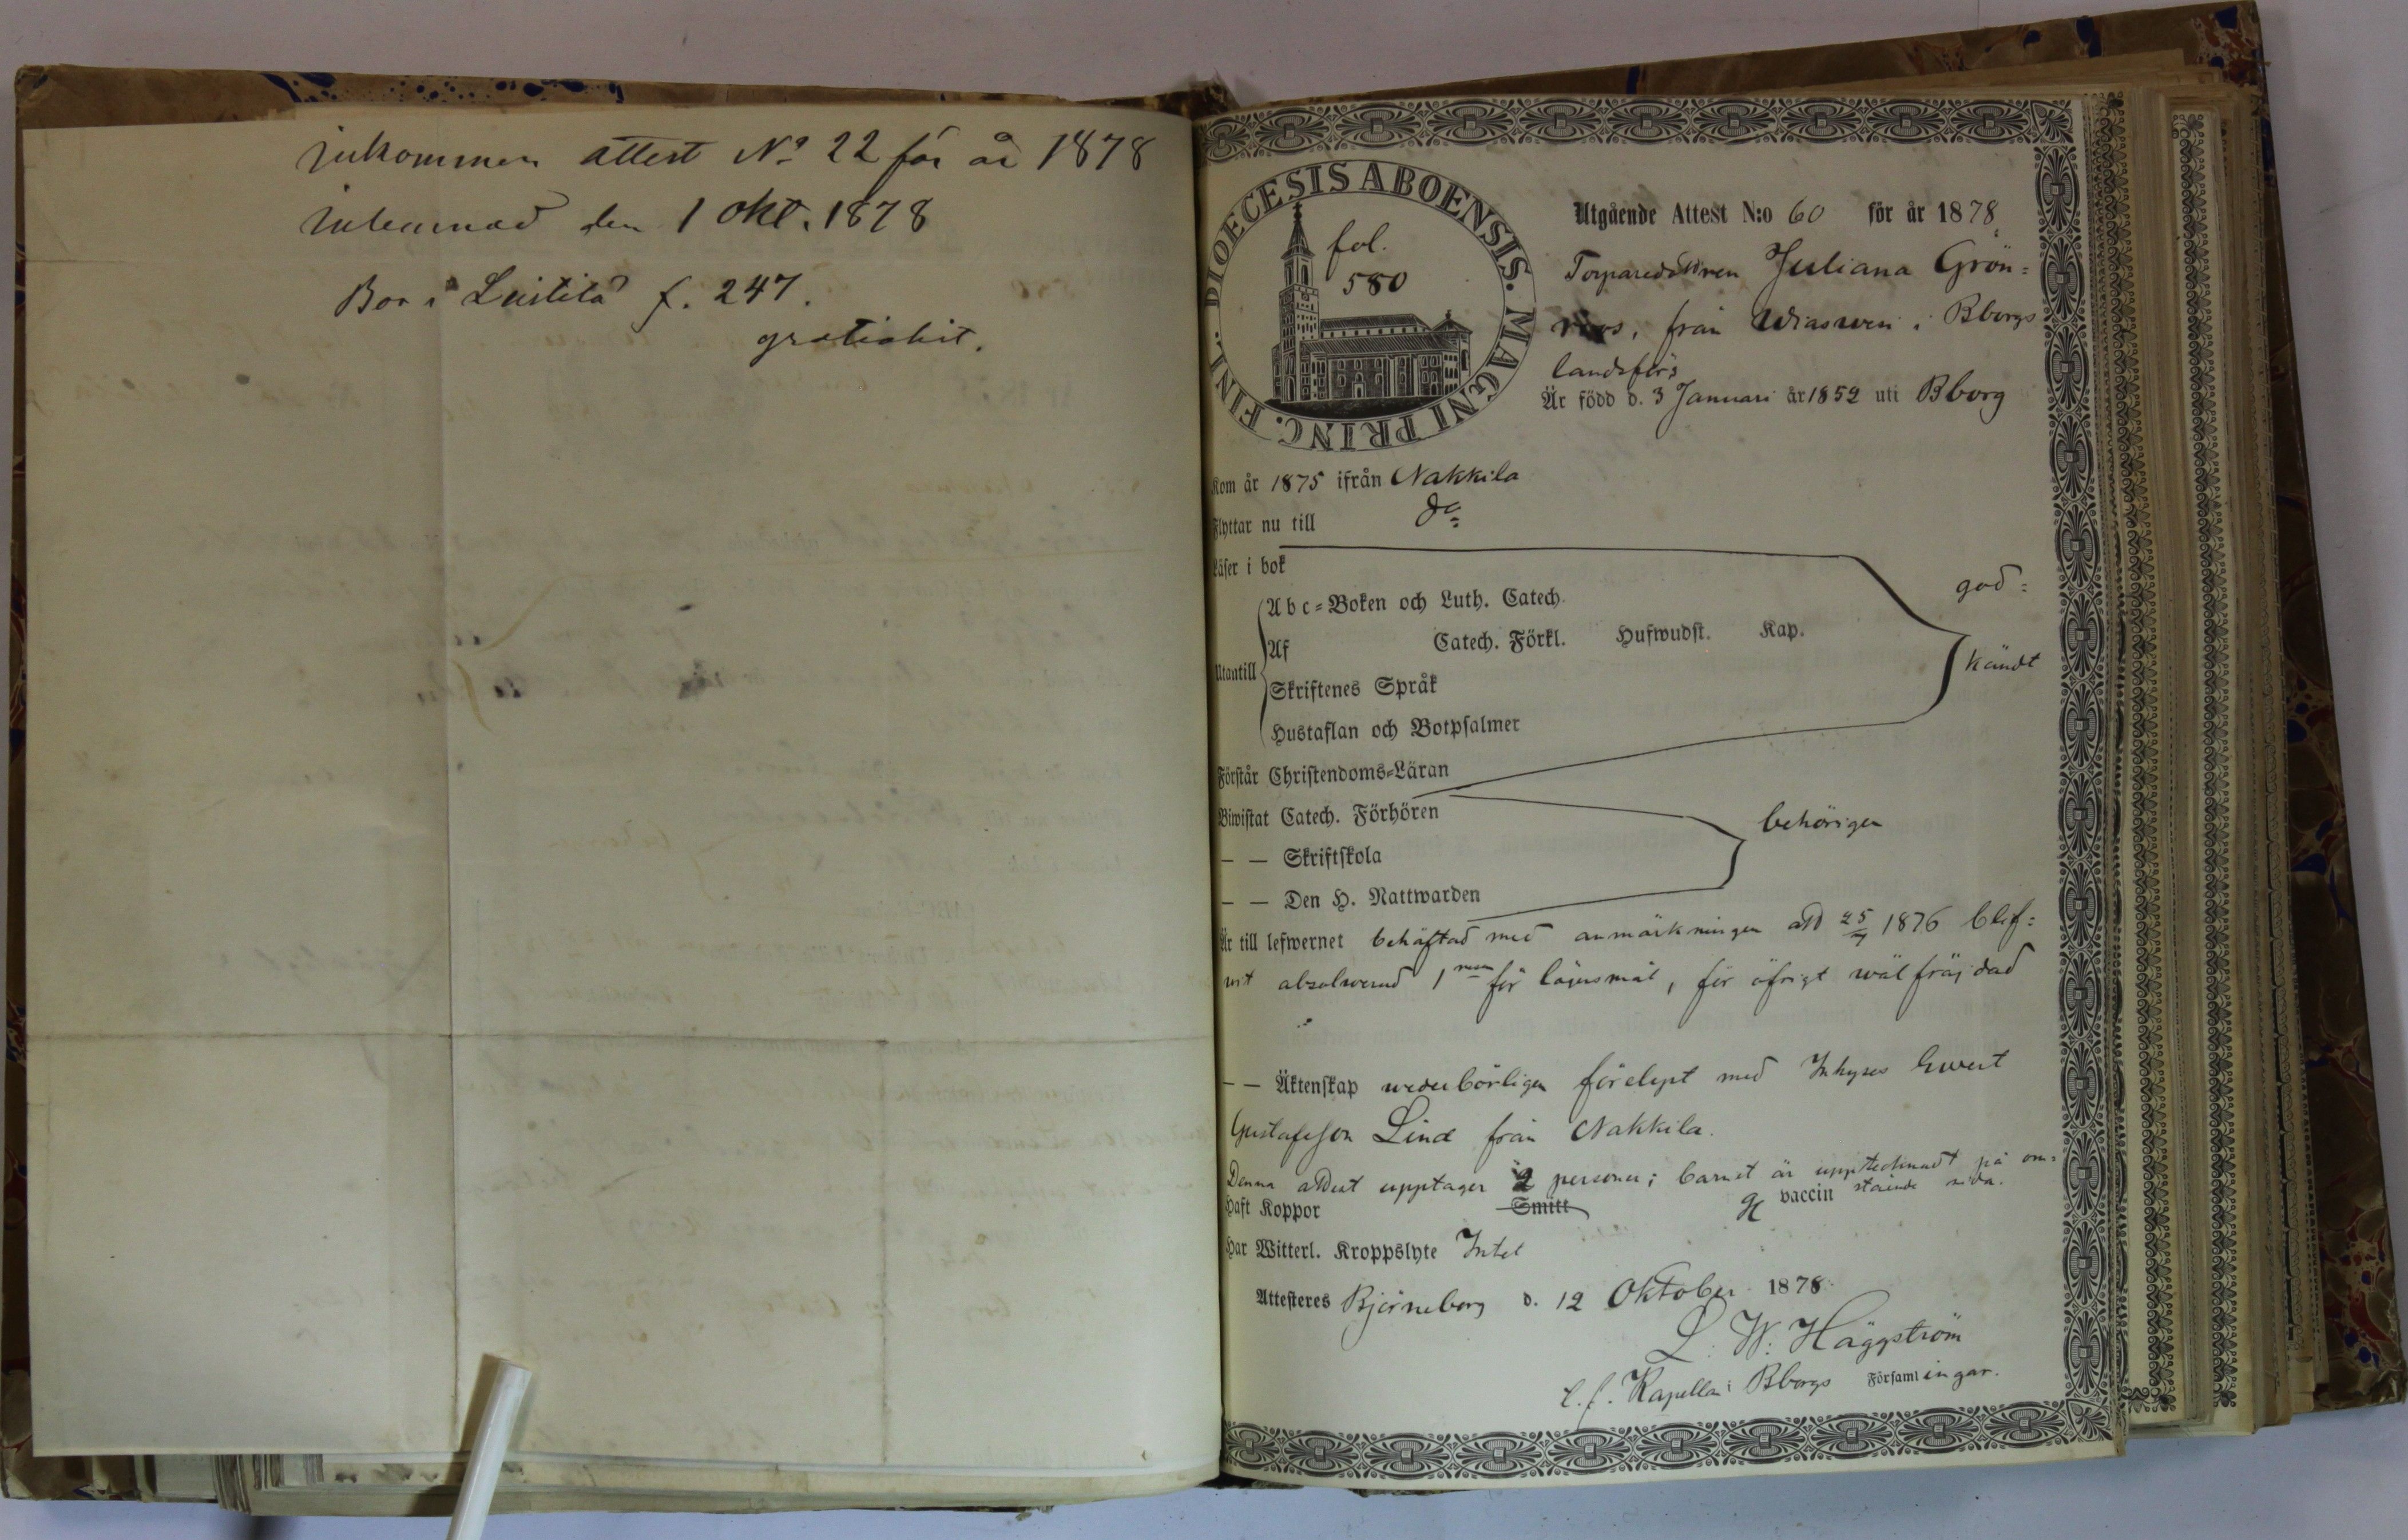 Inkommen attest No 22 för år 1878
inlemnad den 1 Okt. 1878
Bor i Leistilä f. 247.
gratiskit.
DIOECESIS ABOENSIS. MAGNI PRINC. FINL.
fol.
580
Utgående Attest N:o 60 för år 1878,
Torparedottren Juliana Grön=
roos, från Wiaswesi i Bborgs
landsförs
Är född d. 3 Januari år 1852 uti Bborg
Kom år 1875 ifrån Nakkila
Flyttar nu till do
Läser i bok
god=
Abc=Boken och Luth. Catech.
Af Catech. Förkl. Hufwudst. Kap.
Utantill
kändt
Skriftenes Språk
Hustaflan och Botpsalmer
Förstår Christendoms=Läran
Biwistat Catech. Förhören
behörigen
— — Skriftskola
— — Den H. Nattwarden
Är till lefwernet behäftad med anmärkningen att 25/7 1876 blif=
wit absolwerad 1 sta för lägersmål, för öfrigt wälfräjdad
— — Äktenskap wederbörligen förelyst med Inhyses Ewert
Gustafsson Lind från Nakkila.
Denna attest upptager 2 personer; barnet är upptecknadt på om=
stående sida.
Haft Koppor Smitt vaccin
Har Witterl. Kroppslyte Intet
Attesteres Björneborg d. 12 Oktober 1878
L. W. Häggström
t. f. Kapellan i Bborgs Församlingar.